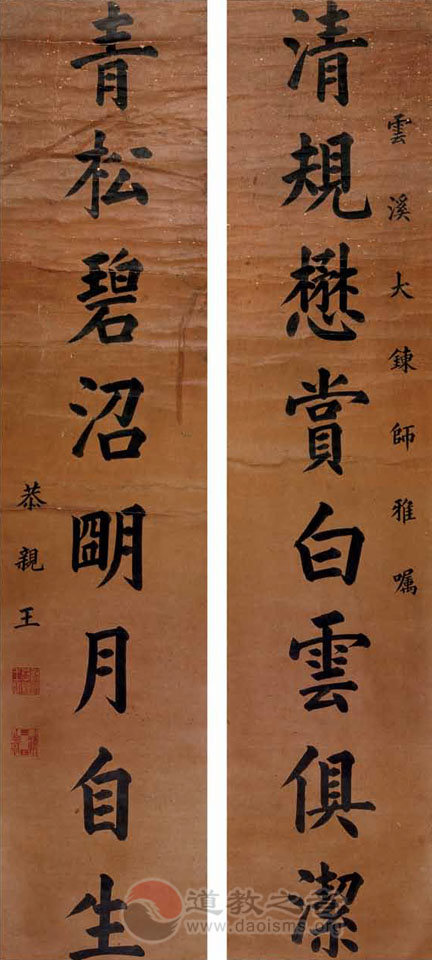 雲溪大鍊師雅嘱
清規懋賞白雲俱潔
青松碧沼朙月自生
恭親王
道教之音
www.daoisms.org